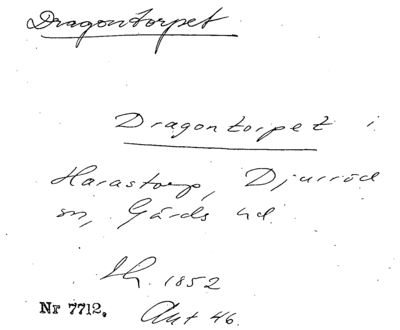 Dragontorpet
Dragontorpet i
Harastorp, Djurröd
sn, Gärds hd
Sk. 1852
Nr 7712. Akt 46.